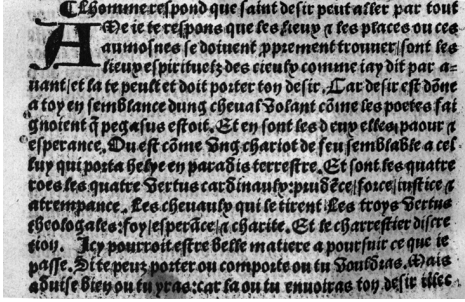 ¶ Lhomme respond que saint desir peut aller par tout
AMe ie te respons que les lieux ⁊ les places ou ces
aumosnes se doiuent ꝓprement trouuer/sont les
lieux espirituelz des cieulx comme iay dit par a-
uant/et la te peult et doit porter ton desir. Car desir est dõne
a toy en semblance dung cheual volant cõme les poetes fai
gnoient q̃ pegasus estoit. Et en sont les deux elles, paour ⁊
esperance. Ou est cõme vng chariot de feu semblable a cel-
luy qui porta helye en paradis terrestre. Et sont les quatre
roes les quatre vertus cardinaulx: prudẽce/force/iustice ⁊
atrempance. Les cheuaulx qui le tirent/Les troys vertus
theologales: foy/esperãce/⁊ charite. Et le charrestier discre
tion. Icy pourroit estre belle matiere a poursuir ce que ie
passe. Si te peuz porter ou comporte ou tu vouldras. Mais
aduise bien ou tu yras: car la ou tu enuoiras ton desir illec